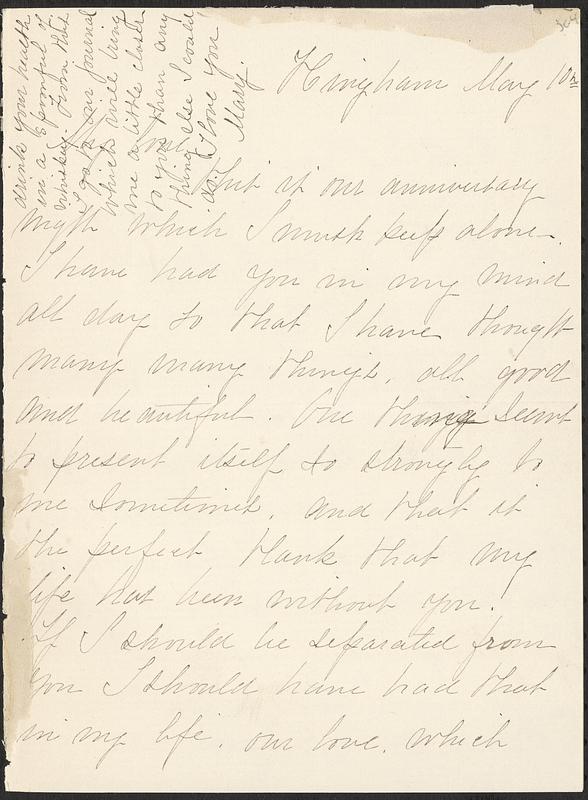 Hingham May 10th
This is our anniversary
night which I must keep alone.
I have had you in my mind
all day so that I have thought
many many things, all good
and beautiful. One thing seems
to present itself so strongly to
me sometimes, and that is
the perfect blank that my
life has been without you!
If I should be separated from
you I should have had that
in my life, our love, which
drink your health
in a spoonful of
whiskey. From that
I go to our journal
which will bring
me a little closer
to you than any
thing else I could
do. I love you
Mary.